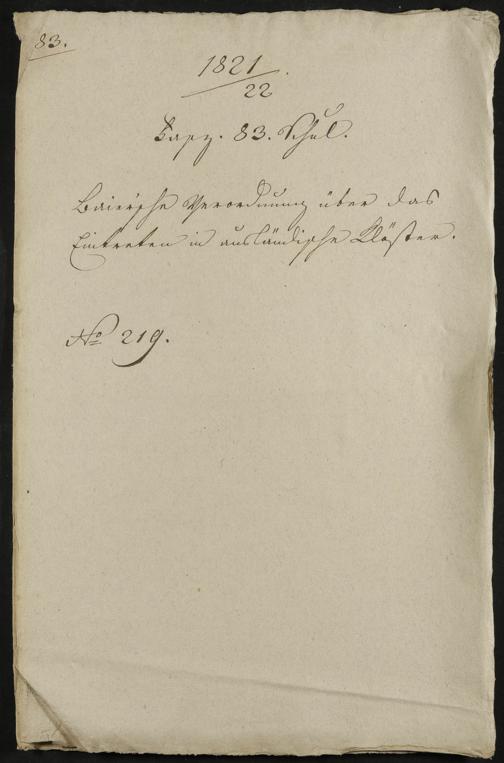 83.
1821
22
Fasz. 83. Schul.
Baierische Verordnung über das
Eintreten in ausländische Klöster.
No 219.